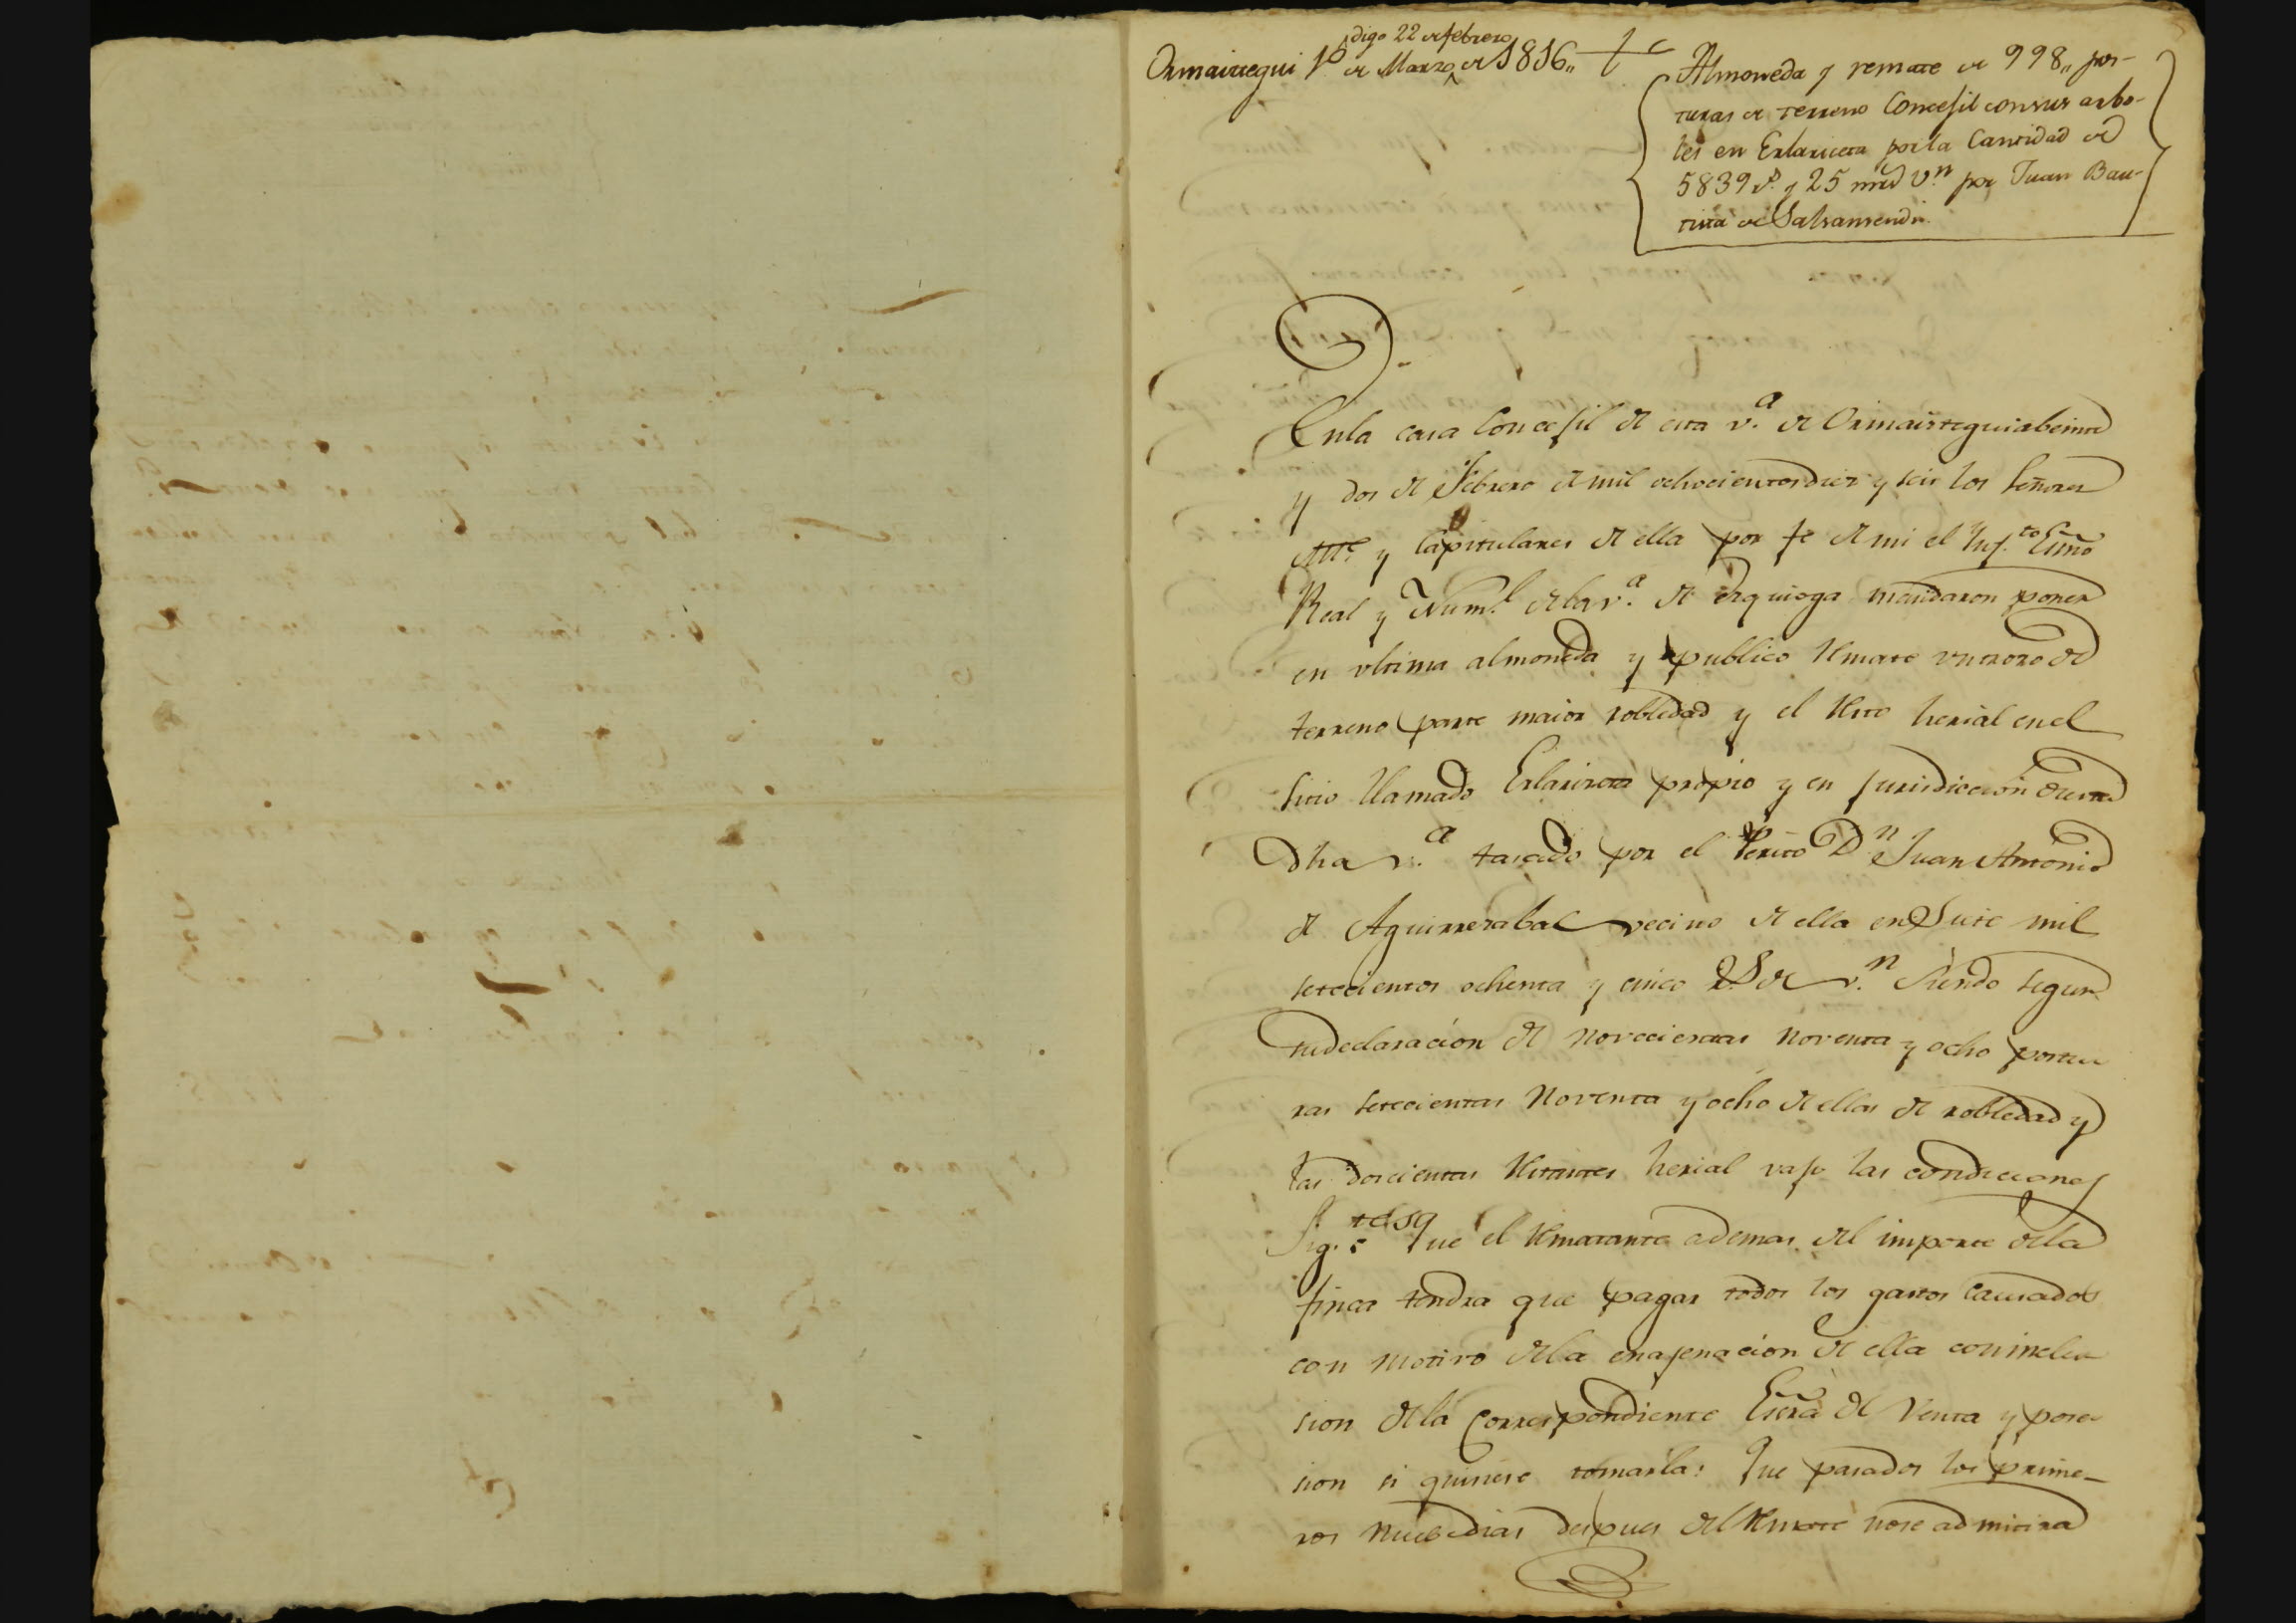 digo 22 de febrero
Ormaiztegui 1º de Marzo de 1816,,
Almoneda y remate de 998,, pos-
turas de terreno Concejil con sus arbo-
les en Erlarizeta por la Cantidad de
5839 rs. y 25 mrs vn. por Juan Bau-
tista de Salsamendi.
En la casa Concejil de esta v.a de Ormaiztegui a beinte
y dos de Febrero de mil ochocientos diez y seis los Señores
Alle. y Capitulares de ella por fe de mi el Ynf.to Essno
Real y Num.l de la v.a de Ezquioga mandaron poner
en vltima almoneda y publico Remate vn trozo de
terreno parte maior robledad y el Resto herial en el
sitio llamado Erlarizeta propio y en jurisdiccion de esta
dha v.a tasado por el Perito Dn Juan Antonio
de Aguirrezabal vecino de ella en Siete mil
setecientos ochenta y cinco Rs de v.n siendo segun
su declaración de novecientas noventa y ocho postu
ras setecientas noventa y ocho de ellas de robledad y
las doscientas Restantes herial vajo las condiciones
sig.tes Que el Rematante ademas del importe de la
finca tendra que pagar todos los gastos causados
con motivo de la enajenacion de ella con inclu
sion de la correspondiente Escra de Venta y pose
sion si quisiese tomarla: Que pasados los prime-
ros nuebe dias despues del Remate no se admitira